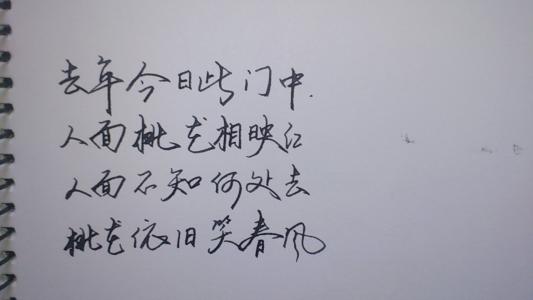 去年今日此门中.
人面桃花相映红
人面不知何处去
桃花依旧笑春风